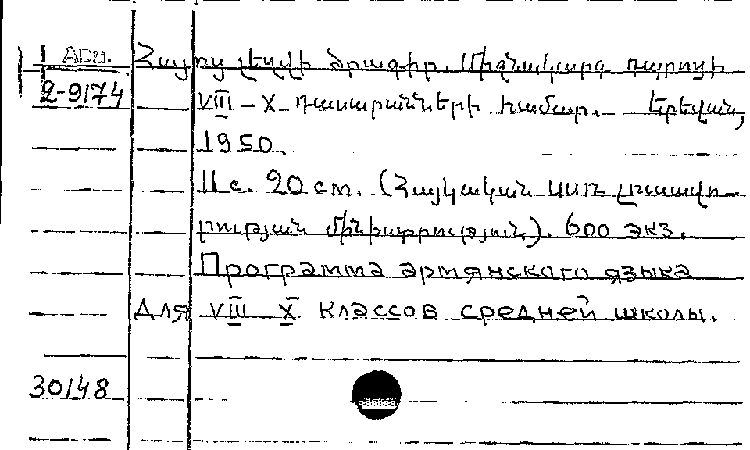 Арм.
2-9174
Հայոց լեզվի ծրագիր. Միջնակարգ դպրոցի
VIII – X դասարանների համար. Երեվան,
1950.
11 с. 20 см. (Հայկական ՍՍՌ լուսավո-
րության մինիստրություն). 600 экз.
Программа армянского языка
для VIII – X классов средней школы.
30148